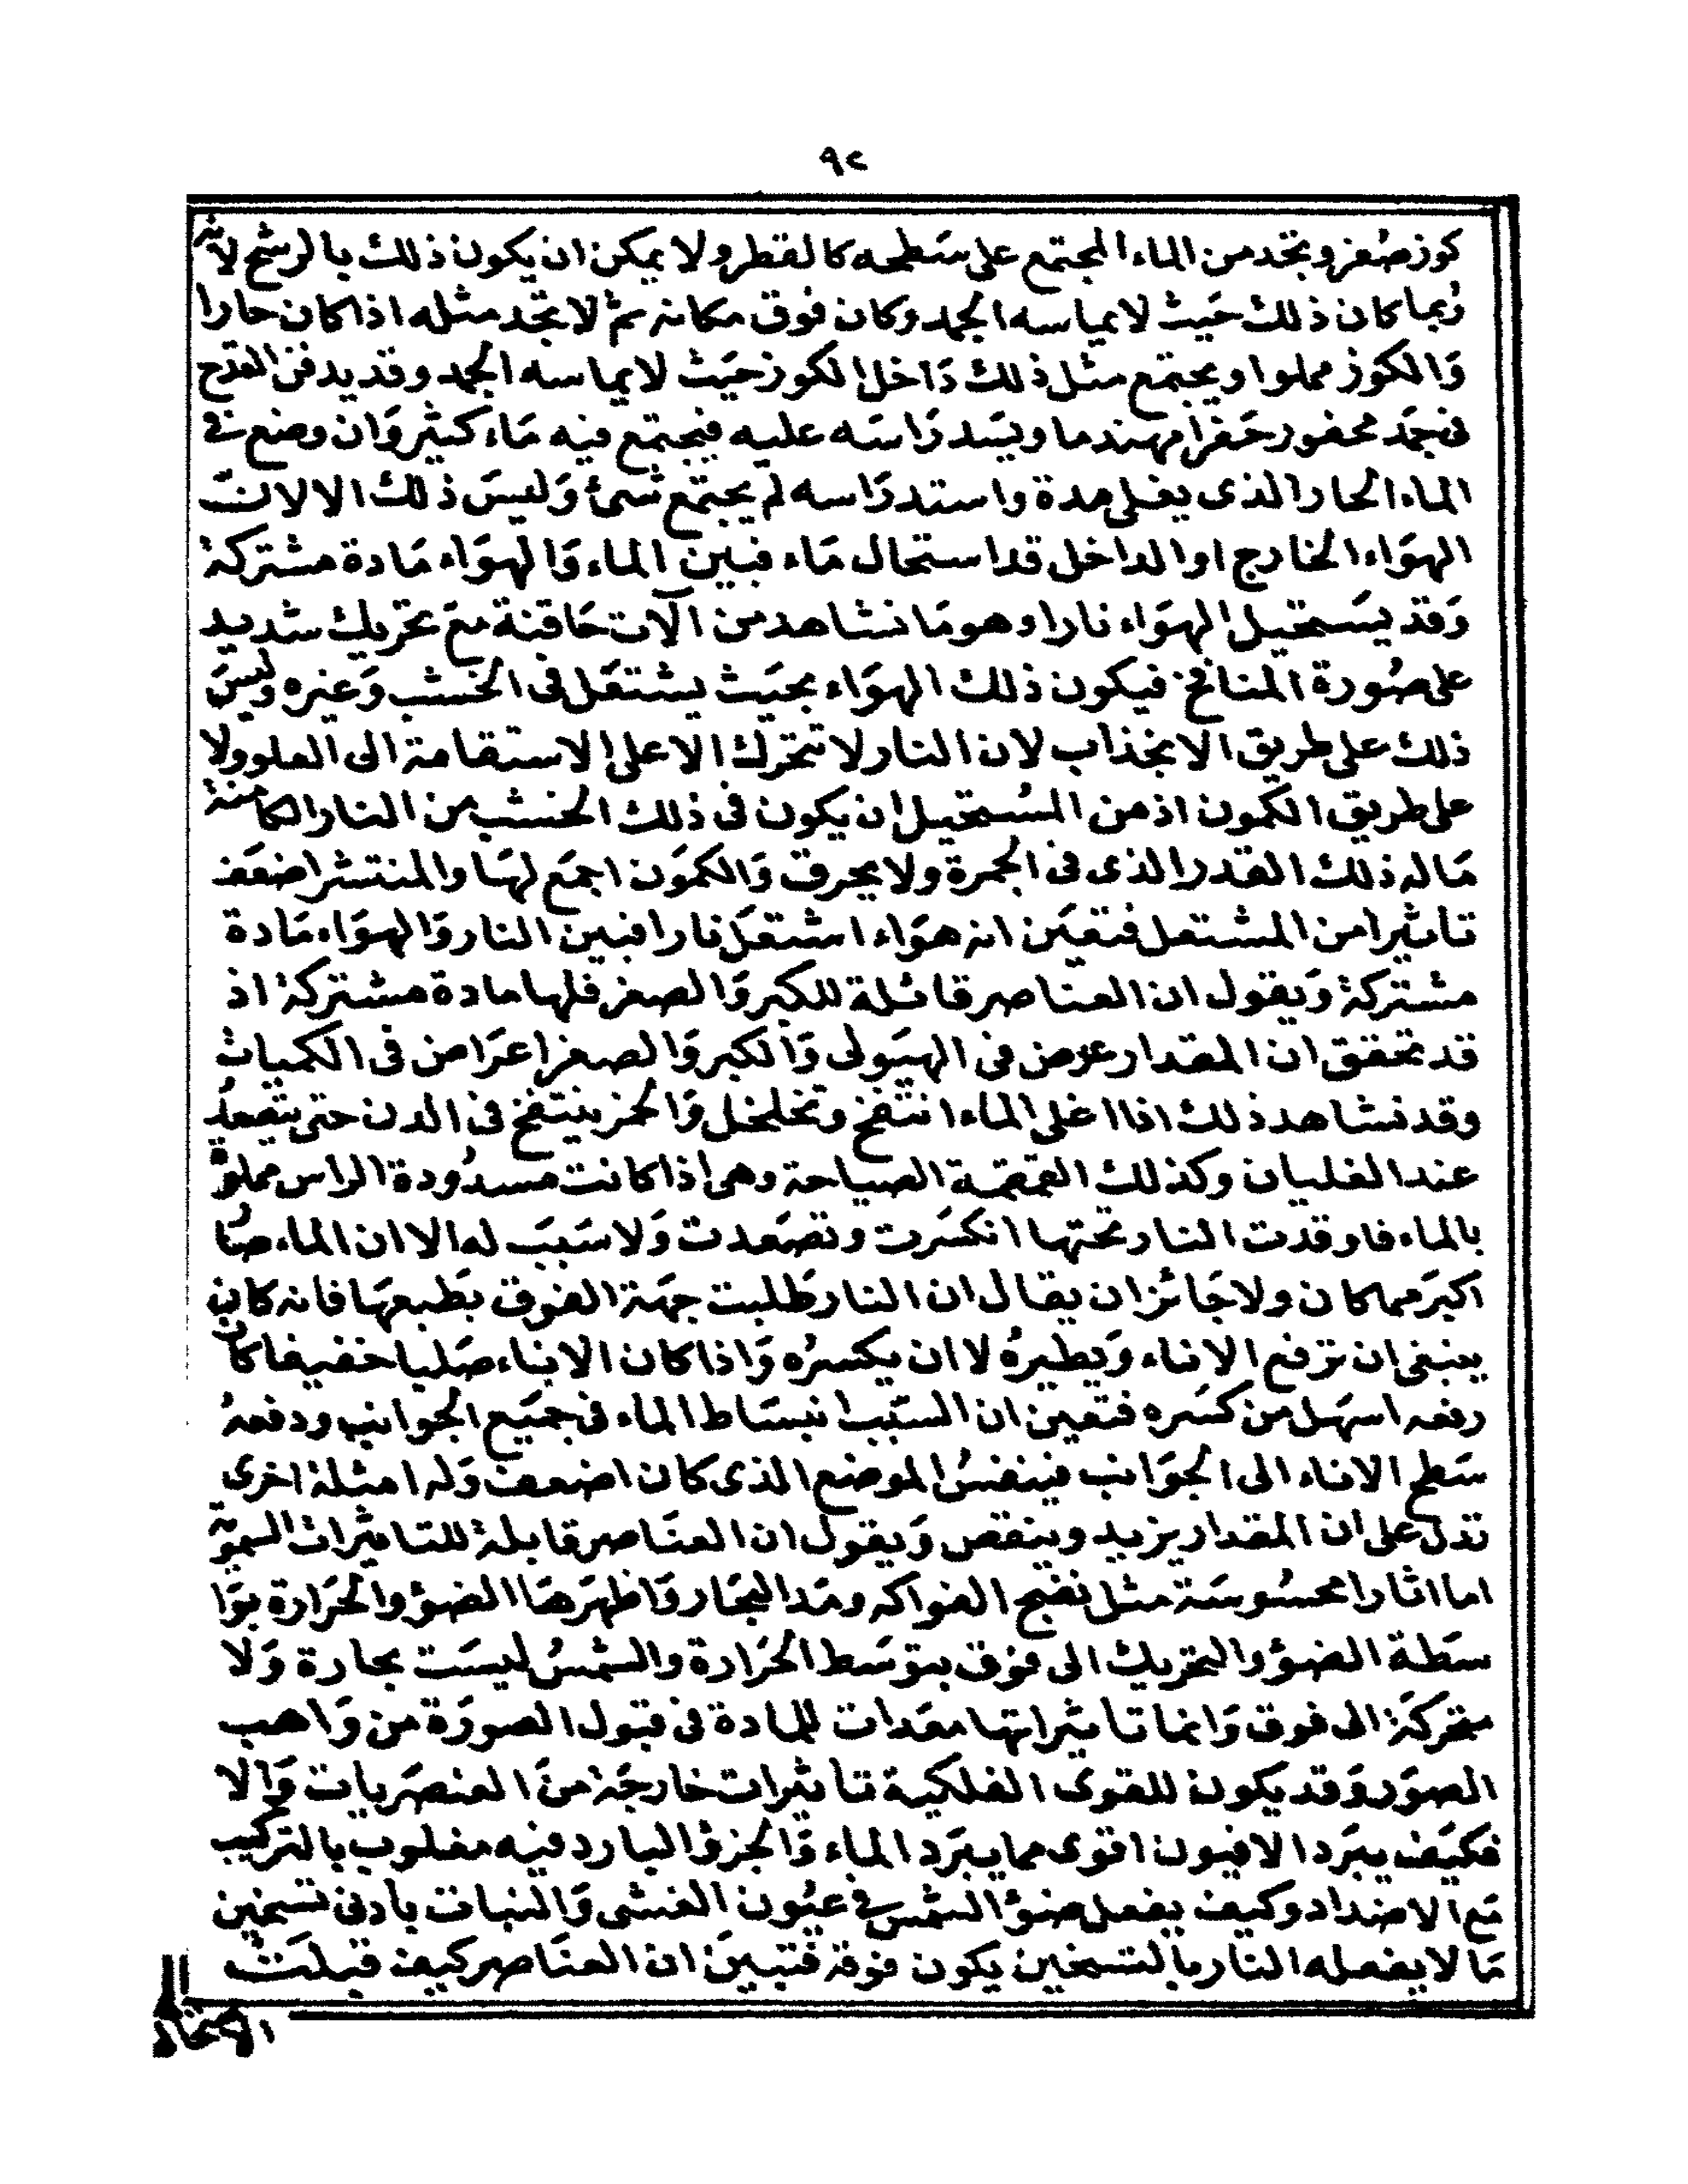 ٩٢
كوز صفر و تجد من الماء المجتمع على سَطحه كا لقطر ولا يمكن ان يكون ذلك بالرشح لانه
رُبما كان ذلك حَيث لا يماسه الجمد وكان فوق مكانه ثم لا تجد مثله اذا كان حارا
وَالكوز مملوا ويجتمع مثل ذلك دَاخل الكوز حَيث لا يماسه الجمد وقد يدفن القدح
فى جمَد محفور حَفرا مهندما ويسَد رَاسَه عليه فيجتمع فيه مَاء كثير وَان وضع فى
الماء الحار الذى يغلى مدة واستد رَاسه لم يجتمع شئ وَليسَ ذلك الا لانَ
الهوَاء الخارج او الداخل قد استحال مَاء فبين الماء وَالهوَاء مَادة مشتركة
وَقد يسَتحيل الهوَاء نارا وهو مَا نشاهد من آلات حَاقنة معَ تحريك شديد
على صُورة المنافخ فيكون ذلك الهوَاء بحيَث يشتعَل فى الخشب وَغيره وليسَ
ذلك على طريق الانجذاب لان النار لا تتحرك الا على الاستقامة الى العلو ولا
على طريق الكمون اذ من المسُتحيل ان يكون فى ذلك الخشب من النار الكامنة
مَا له ذلك القدر الذى فى الجمرة ولا يحرق وَالكموَن اجمَع لهَا والمنتشر اضعَف
تاثيرا من المشتعل فتعيَن انه هوَاء اشتعَل نارا فبين النار وَالهوَاء مَادة
مشتركة وَيقول ان العناصر قابلة للكبر وَالصغر فلها مادة مشتركة اذ
قد تحقق ان المقدار عرض فى الهيَولى وَالكبر وَالصغر اعرَاض فى الكميات
وقد نشاهد ذلك اذا اغلى الماء انتفخ وتخلخل وَالخمر ينتفخ فى الدن حتى يتصعدُ
عند الغليان وكذلك القمقمة الصياحة وهى اذا كانت مسدُودة الراس مملوة
بالماء فاوقدت النار تحتها انكسَرت وتصَعدت وَلا سَببَ له الا ان الماء صَار
اكبرَ مما كان ولا جَائز ان يقال ان النار طَلبت جهَة الفوق بطَبعهَا فانه كان
ينبغى ان ترفع الاناء وَيطيرهُ لا ان يكسرُه وَاذا كان الاناء صَلبا خفيفا كان
رفعه اسهَل من كسَره فتعين ان السبَب انبسَاط الماء فى جميَع الجوانب ودفعهُ
سَطح الاناء الى الجوَانب فينفسُ الموضع الذى كان اضعف وَله امثلة اخرى
تدل على ان المقدار يزيد وينقص وَيقول ان العنَاصر قابلة للتاثيرات السموية
اما اثارا محسُوسَة مثل نضج الفواكه ومَد البحَار وَاظهرَهَا الضوء والحَرارة بوَا
سَطة الضوء والتحريك الى فوق بتوَسَط الحَرارة والشمسُ ليسَت بحارة وَلا
متحركَة الى فوق وَانما تاثيراتها معَدات للمادة فى قبول الصورَة من وَاهب
الصوَر وَقد يكون للقوى الفلكية تاثيرات خارجَة منَ العنصَريات وَالا
فكيَف يبرَد الافيون اقوى مما يبرَد الماء وَالجزؤ البارد فيه مغلوب بالتركيب
مَع الاضداد وكيف يفعل ضوء الشمس فى عيُون العشى وَالنبات بادنى تسخين
مَا لا يفعله النار بالتسخين يكون فوقه فتبينَ ان العنَاصر كيف قبلَت